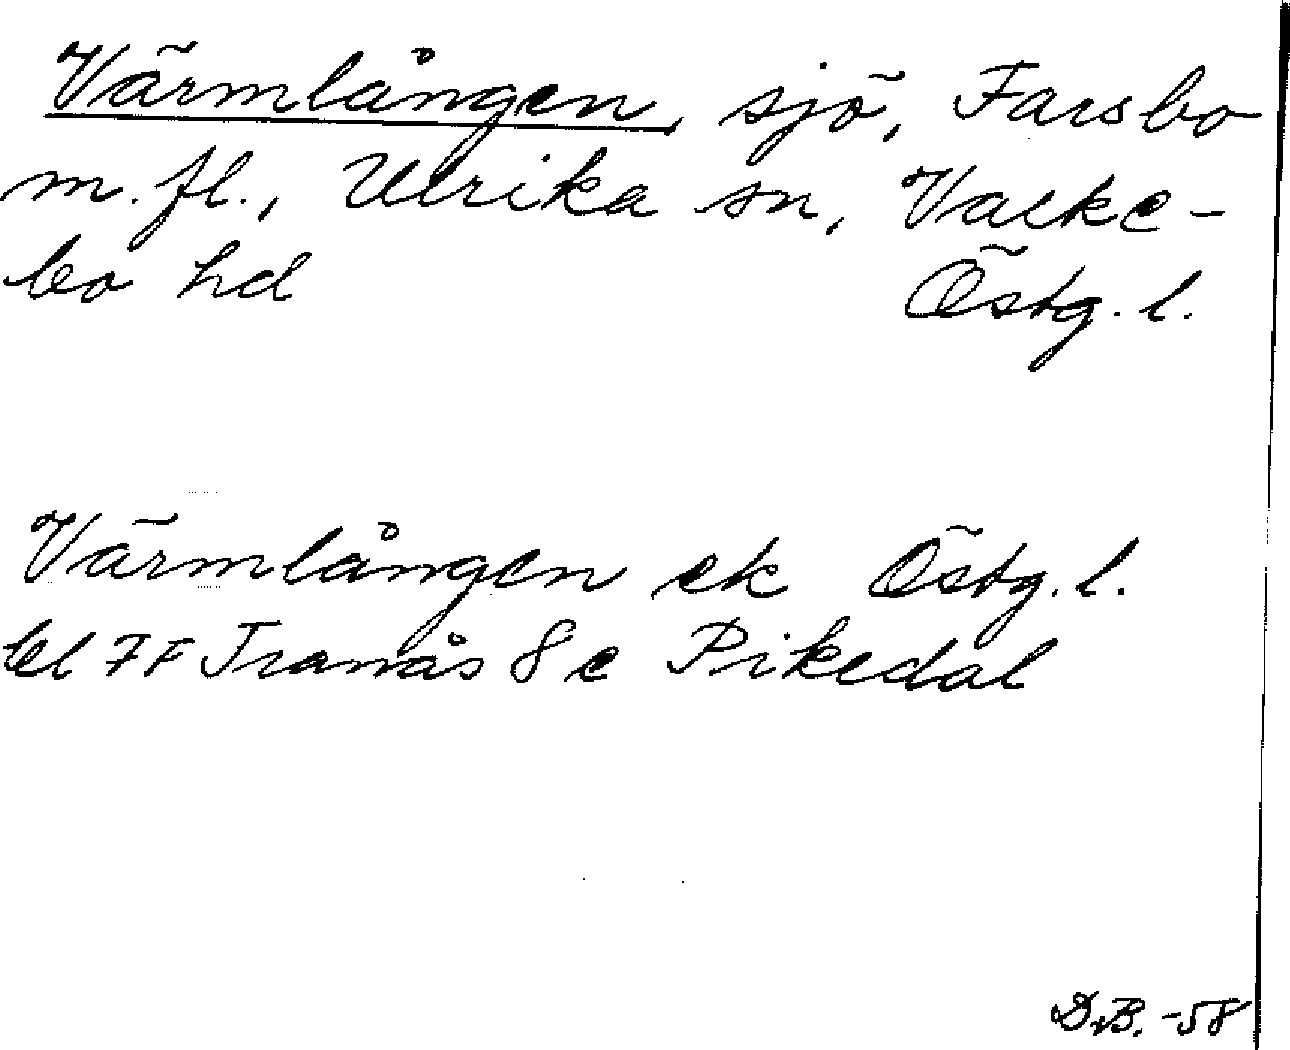 Värmlången, sjö, Farsbo
m. fl., Ulrika sn, Valke-
bo hd Östg. l.
Värmlången ek Östg. l.
bl 7F Tranås 8e Pikedal
D.B. -58